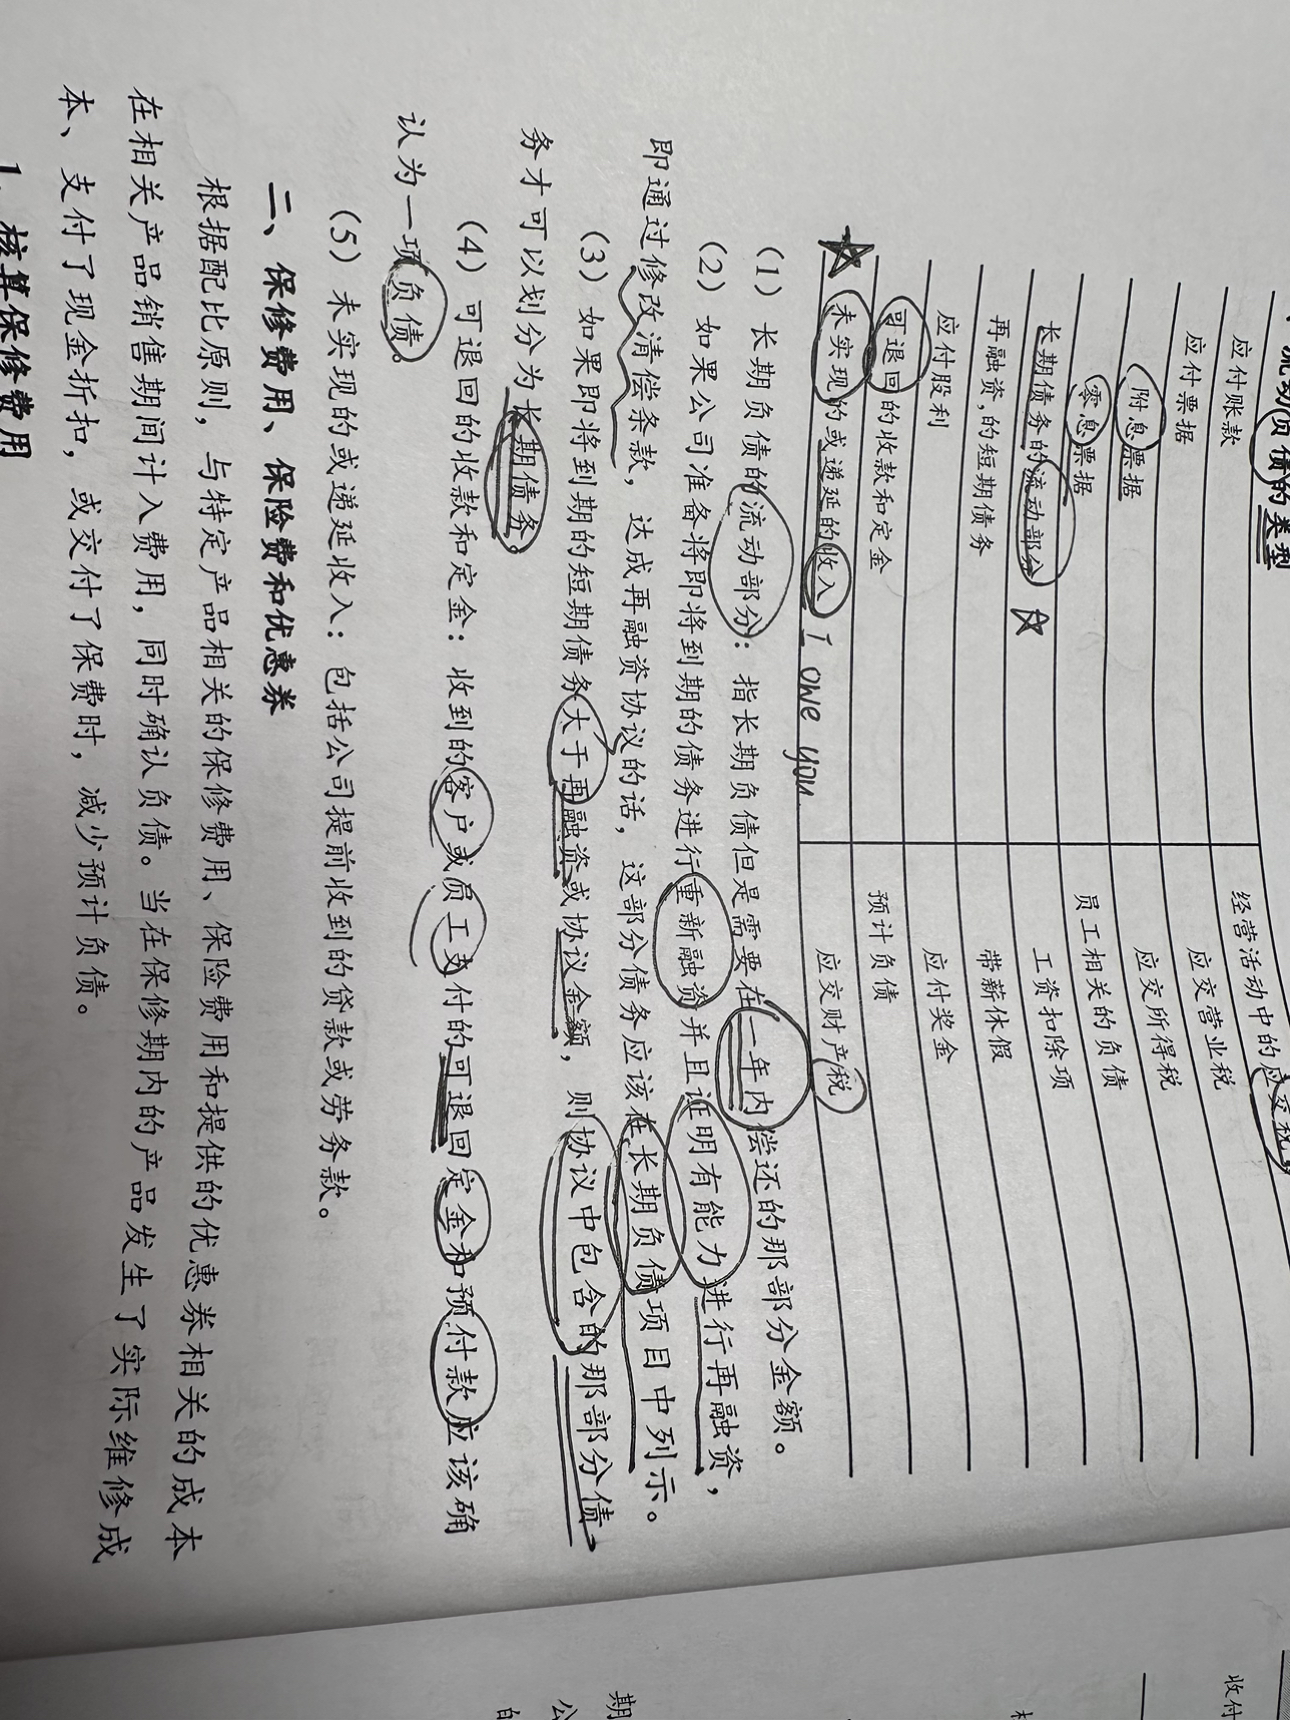 流动负债的类型
应付账款 经营活动中的应交税
应付票据 应交营业税
附息票据 应交所得税
零息票据 员工相关的负债
长期债务的流动部分 工资扣除项
再融资,的短期债务 带薪休假
应付股利 应付奖金
可退回的收款和定金 预计负债
未实现的或递延的收入 I owe you 应交财产税
(1) 长期负债的流动部分：指长期负债但是需要在一年内偿还的那部分金额。
(2) 如果公司准备将即将到期的债务进行重新融资并且证明有能力进行再融资，
即通过修改清偿条款，达成再融资协议的话，这部分债务应该在长期负债项目中列示。
(3) 如果即将到期的短期债务大于再融资或协议金额，则协议中包含的那部分债
务才可以划分为长期债务。
(4) 可退回的收款和定金：收到的客户或员工支付的可退回定金和预付款应该确
认为一项负债。
(5) 未实现的或递延收入：包括公司提前收到的贷款或劳务款。
二、保修费用、保险费和优惠券
根据配比原则，与特定产品相关的保修费用、保险费用和提供的优惠券相关的成本
在相关产品销售期间计入费用，同时确认负债。当在保修期内的产品发生了实际维修成
本、支付了现金折扣，或交付了保费时，减少预计负债。
1. 核算保修费用
收付
期
公
的